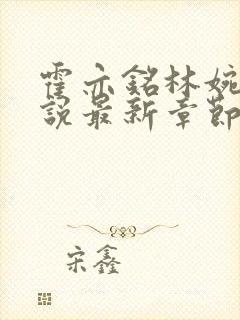 霍亦銘林婉
說最新章節
宋鑫